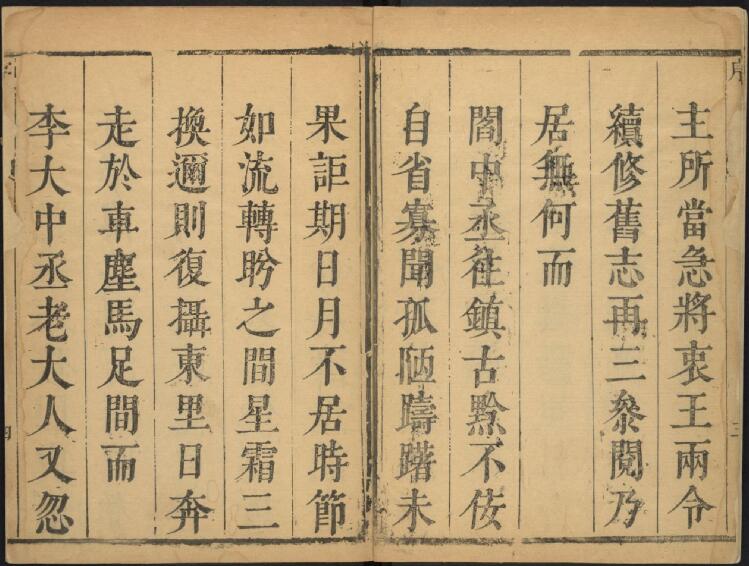 主所當急將衷王兩令
續修舊志再三叅閱乃
居無何而
閻中丞往鎮古黔不佞
自省寡聞孤陋躊躇未
果詎期日月不居時節
如流轉盻之間星霜三
換邇則復攝東里日奔
走於車塵馬足間而
李大中丞老大人又忽